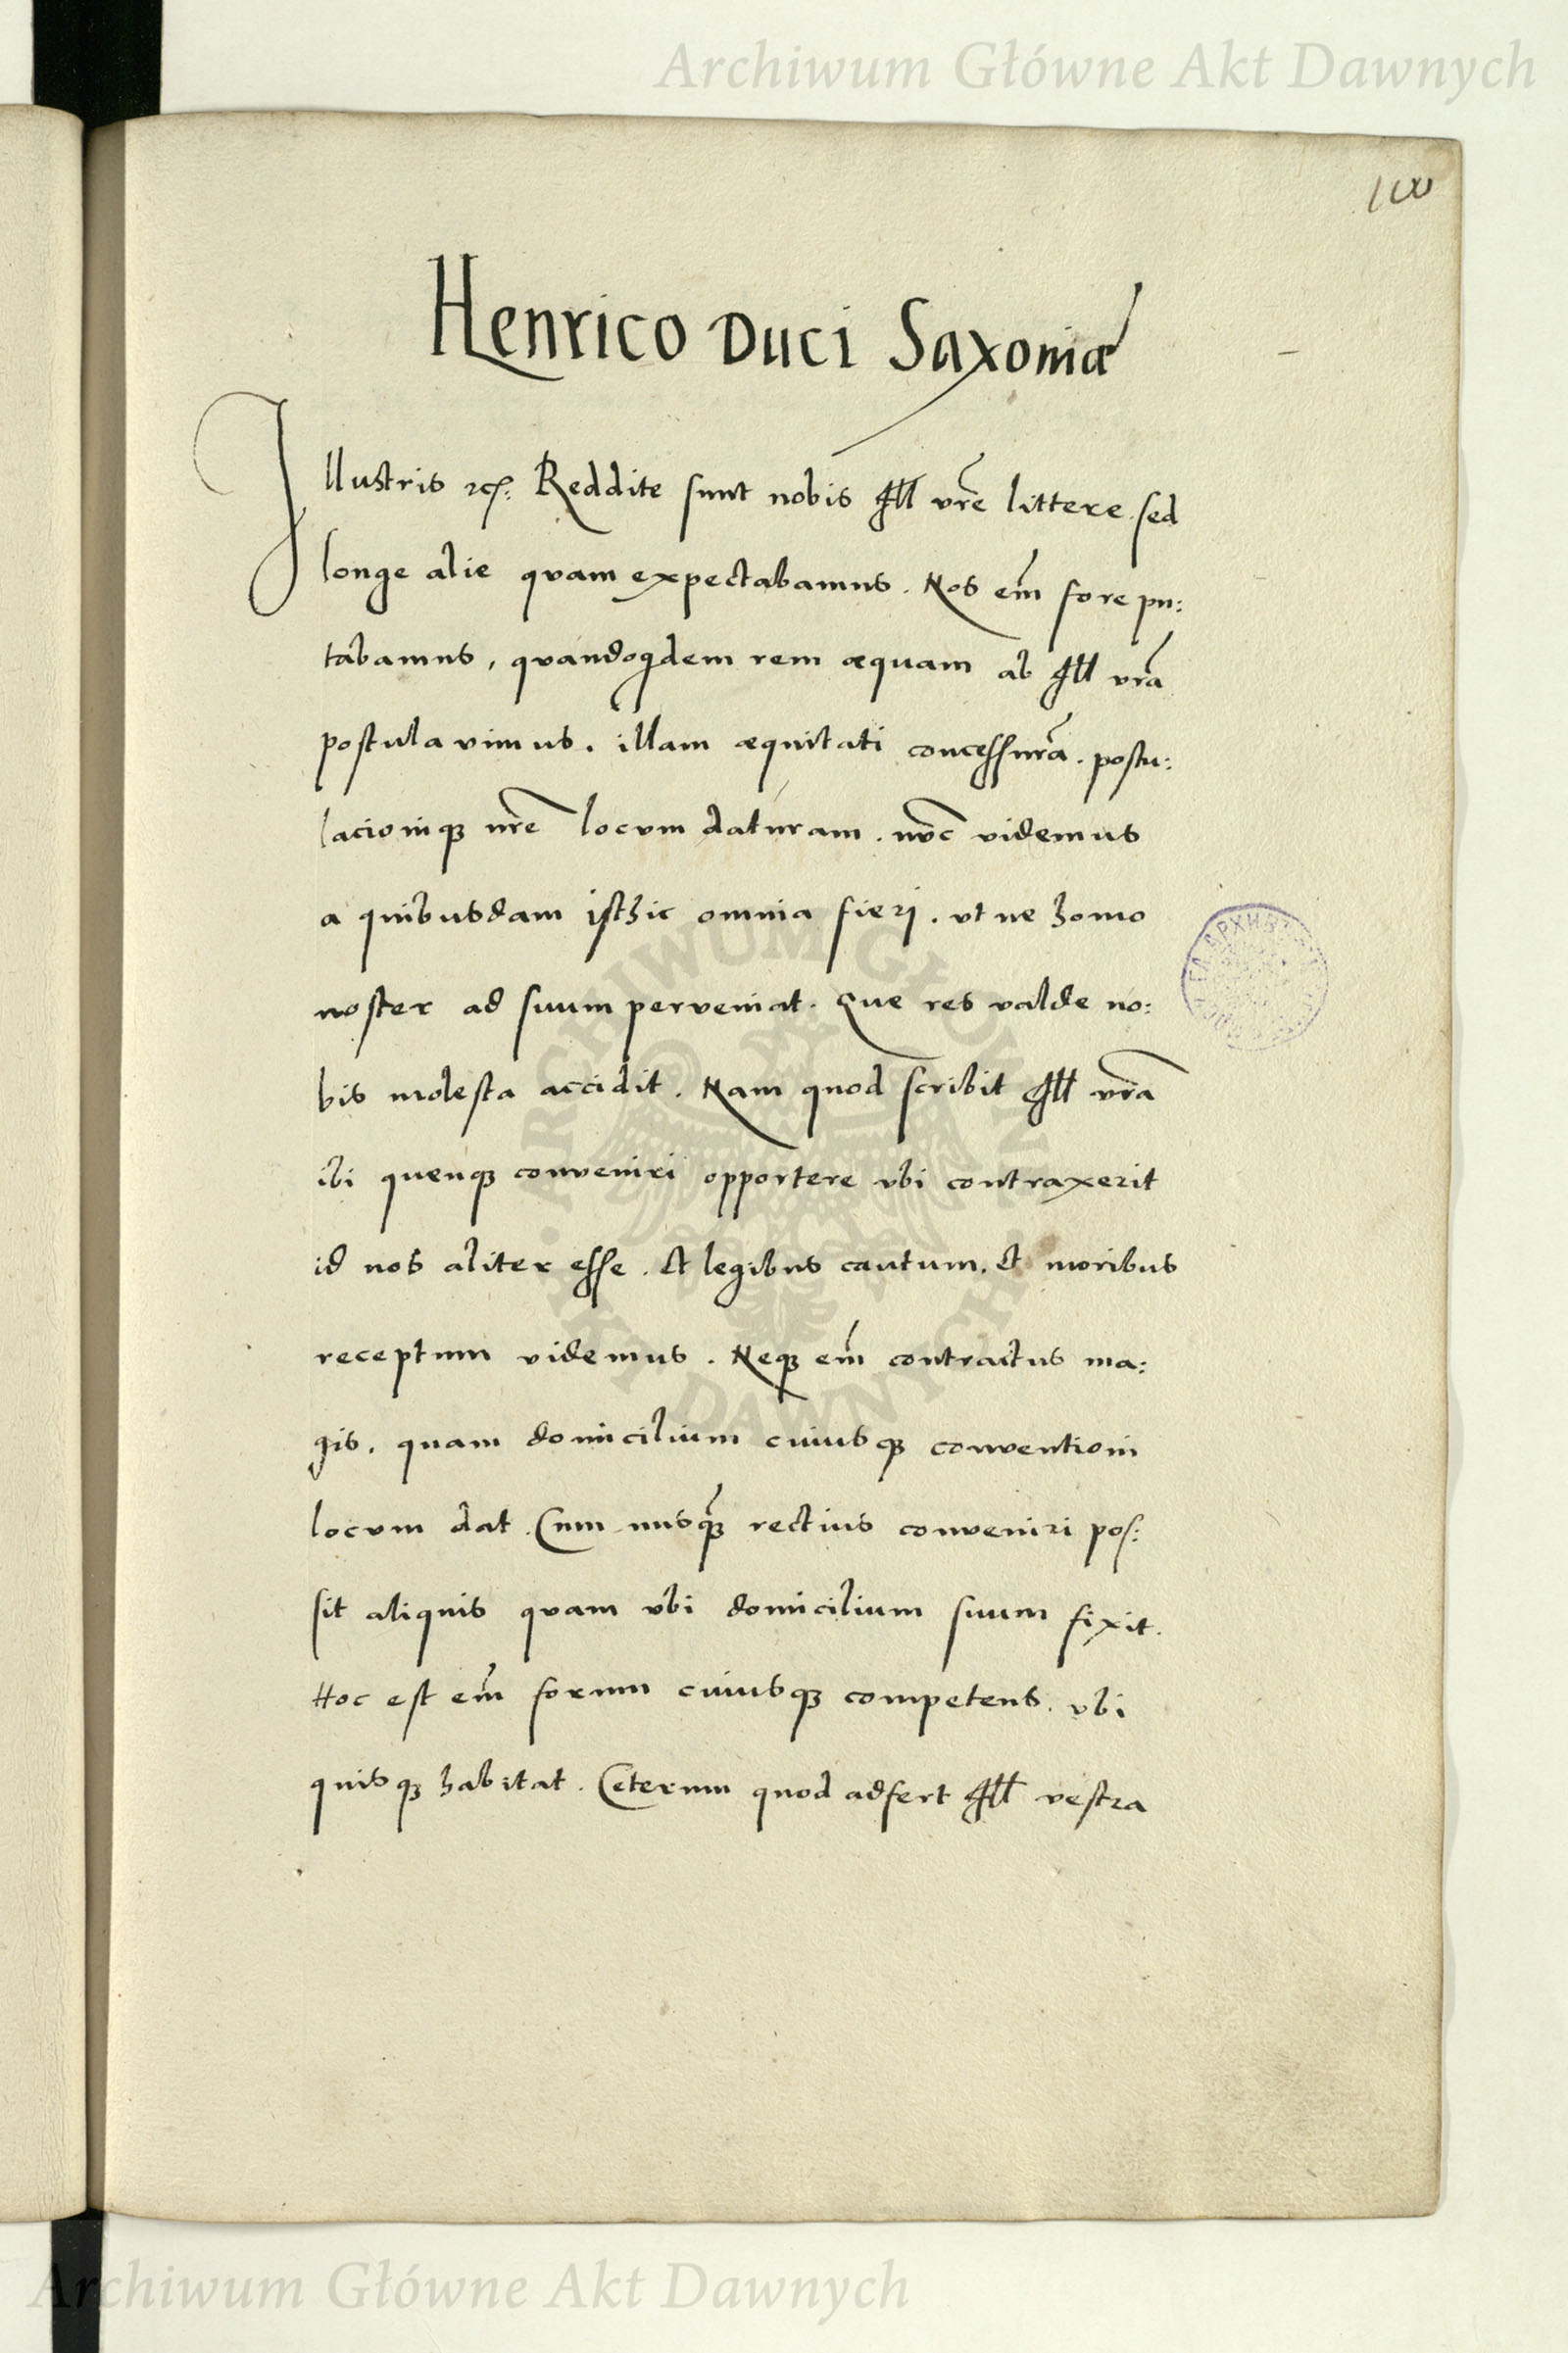 Archiwum Główne Akt Dawnych
100
Henrico Duci Saxoniæ
Illustris etc. Reddite sunt nobis Ill vr̄e littere sed
longe alie quam expectabamus. Nos em̄ fore pu:
tabamus, quandoqdem rem æquam ab Ill vr̄a
postulavimus. illam æquitati concessur̄a. postu:
lacioniqȝ nr̄e locum daturam. nūc videmus
a quibusdam isthic omnia fieri. ut ne homo
noster ad suum perveniat. Que res valde no:
bis molesta accidit. Nam quod scribit Ill vr̄a
ibi quenqȝ conveniri opportere ubi contraxerit
id nos aliter esse. Et legibus cautum. Et moribus
receptum videmus. Neqȝ em̄ contractus ma:
gis. quam domicilium cuiusqȝ conventioni
locum dat. Cum nusqȝ̄ rectius conveniri pos:
sit aliquis quam ubi domicilium suum fixit.
Hoc est em̄ forum cuiusqȝ competens. ubi
quisqȝ habitat. Ceterum quod adfert Ill vestra
ARCHIWUM GŁÓWNE
AKT DAWNYCH
Archiwum Główne Akt Dawnych